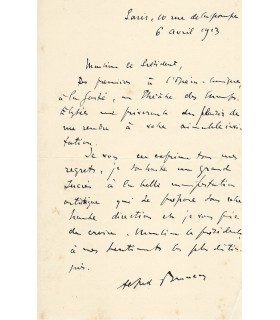 Paris, 10 rue de la pompe
6 avril 1913
Monsieur le Président,
Des premières à l'Opéra-Comique,
à la Gaîté, au Théâtre des Champs-
Elysées me priveront du plaisir de
me rendre à votre aimable invi-
tation.
Je vous en exprime tous mes
regrets, je souhaite un grand
succès à la belle manifestation
artistique qui se propose sous votre
haute direction et je vous prie
de croire, Monsieur le président,
à mes sentiments les plus distin-
gués.
Alfred Bruneau